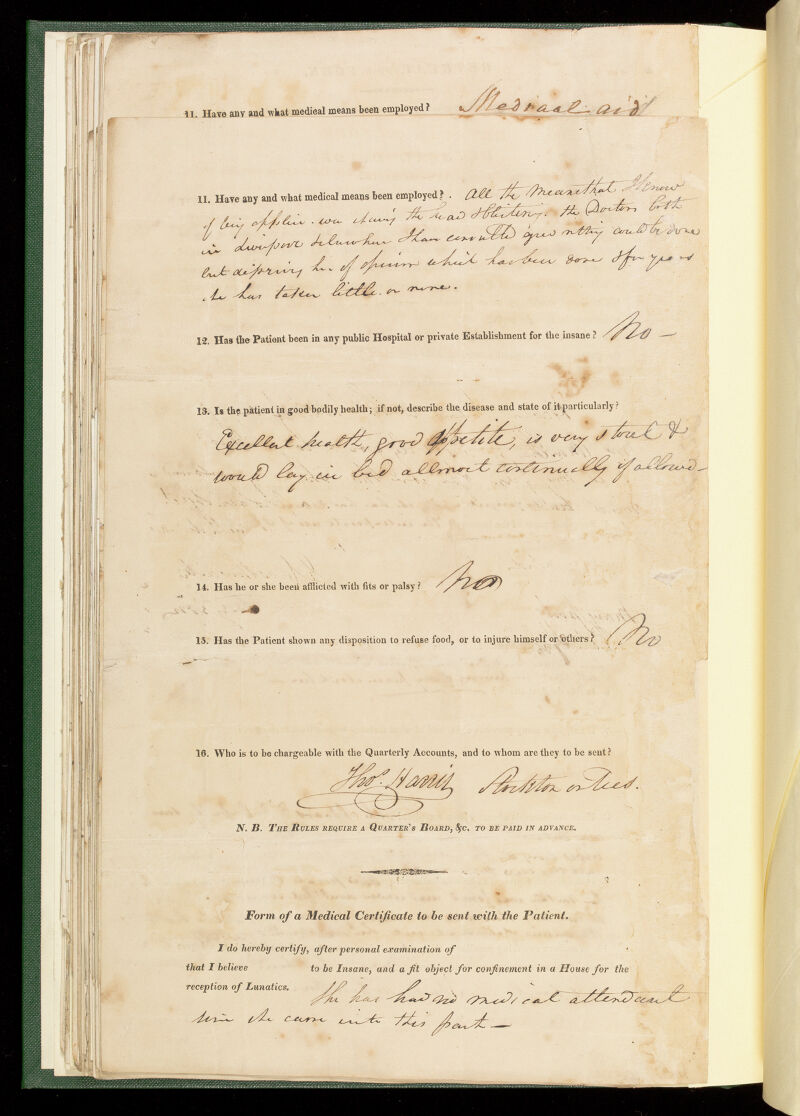 11. Have any and what medical means been employed? Medicaal aid
11. Have any and what medical means been employed? . All the means that I know
of being applied were shaving the head & blistering. the Doctors both
in & elsewhere I have consulted agree nothing could be done
but depriving her of opium which has been done & for years
she has taken little or none.
12. Has the Patient been in any public Hospital or private Establishment for the insane? No —
13. Is the patient in good bodily health; if not, describe the disease and state of it particularly?
Excellent health, good appetite, is very stout &
would lay in bed allmost continually if allowed —
14. Has he or she been afflicted with fits or palsy? No
15. Has the Patient shown any disposition to refuse food, or to injure himself or others? No
16. Who is to be chargeable with the Quarterly Accounts, and to whom are they to be sent?
Thos. Harris Stockton on Tees.
N. B. The Rules require a Quarter's Board, &c. to be paid in advance.
Form of a Medical Certificate to be sent with the Patient.
I do hereby certify, after personal examination of
that I believe to be Insane, and a fit object for confinement in a House for the
reception of Lunatics.
She has had no medical attendant
she came into this part —